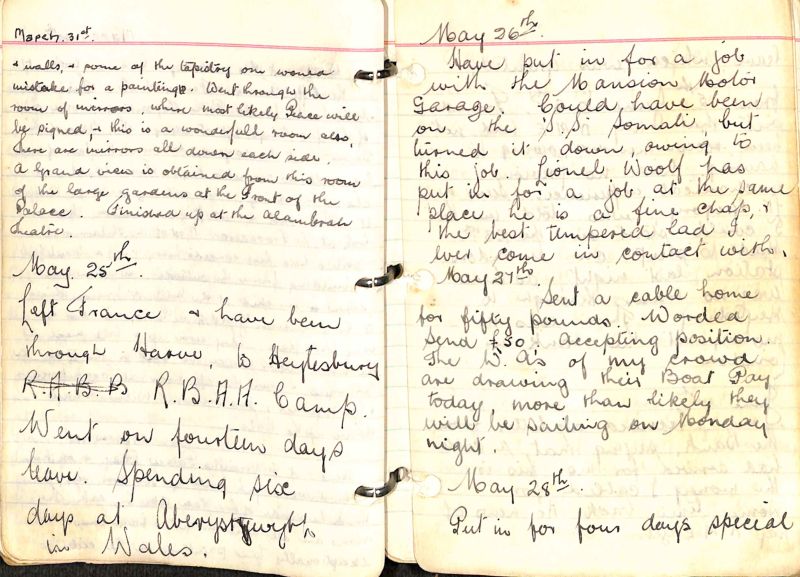 March. 31st.
& walls, & some of the tapistry one would
mistake for a paintings. Went through the
room of mirrors, where most likely Peace will
be signed, & this is a wonderfull room also,
there are mirrors all down each side.
A Grand view is obtained from this room
of the large gardens at the front of the
Palace. Finished up at the Alambrah
Theatre.
May. 25th.
Left France & have been
through Havre, to Heytesbury
R.A.B.B R.B.A.A. Camp.
Went on fourteen days
leave. Spending six
days at Aberystywight
in Wales.
May 26th.
Have put in for a job
with the Mansion Motor
Garage. Could have been
on the S.S. Somali, but
turned it down, owing to
this job. Lionel Woolf has
put in for a job at the same
place he is a fine chap, &
the best tempered lad I
ever come in contact with.
May 27th.
Sent a cable home
for fifty pounds. Worded
Send £50 accepting position.
The W.A's of my crowd
are drawing their Boat Pay
today more than likely they
will be sailing on Monday
night.
May 28th.
Put in for four days special